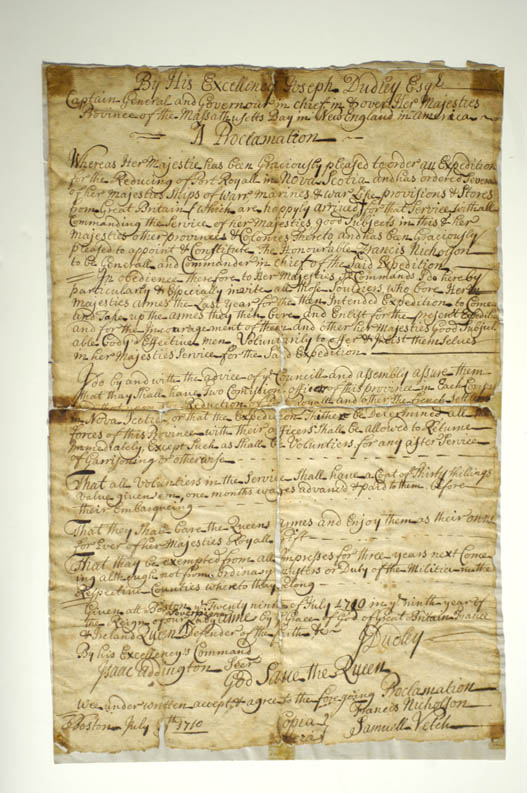 By His Excellency Joseph Dudley Esqr.
Captain General and Governour in chief in & over Her Majesties
Province of the Massathusetts Bay in New England in America
A Proclamation
Whereas Her Majestie has been Graciously pleased to order an Expedition
for the Reducing of Port Royall in Nova Scotia and has ordered Severall
of her majesties Ships of Warr marines & War like provisions & Stores
from Great Britain (which are happyly arrived) for that Service with all
Commanding the Service of her Majesties good Subjects in this & her
majesties other provinces & Colonies thereto and has been Graciously
pleased to appoint & Constitute the Honourable Francis Nicholson
to be Generall and Commander in Chief of the said Expedition
In obedience therefore to Her Majesties Commands I do hereby
particularly & Especially invite all those Souldiers who bore Her
majesties armes the Last year for the then Intended Expedition to Come
and Take up the armes they then bore and Enlist for the present Expedit
and for the Incouragement of them and other her Majesties Good Subjects
able Body'd Effectiue men Voluntarily to offer & Enlist themselves
in her Majesties Service for the Said Expedition
I do by and with the advice of ye Councill and assembly assure them
That thay Shall have Two Comission officers of this province in Each Comp
Reduction of Port Royall and other the french Settlem
in Nova Scotia or that the Expedition Thither be Determined all
forces of this Province with their officers Shall be allowed to Returne
Immediately Except Such as Shall be Voluntiers for any after Service
of Garrisoning or otherwise
That all Voluntiers in the Service Shall have a Coat of Thirty shillings
value given em, one months wages advanc'd & paid to them before
their Embarqueing
That they Shall have the Queens armes and Enjoy them as their owne
for Ever of her Majesties Royall Gift
That thay be exempted from all Impresses for three years next Come
ing although not from ordinary Duty of the Militia in the
Respective Counties whereto they belong
Given att Boston ye Twenty ninth of July 1710 in ye ninth year of
the Reign of our Sovereign Lady Anne by ye Grace of God of Great Britain France
& Ireland Queen Defender of the faith &c
J Dudley
By his Excellency's Command
Isaac Addington Secr.
God Save the Queen
Wee underwritten accept & agree to the foregoing Proclamation
Boston July 1710
Francis Nicholson
Samuell Vetch
Copia